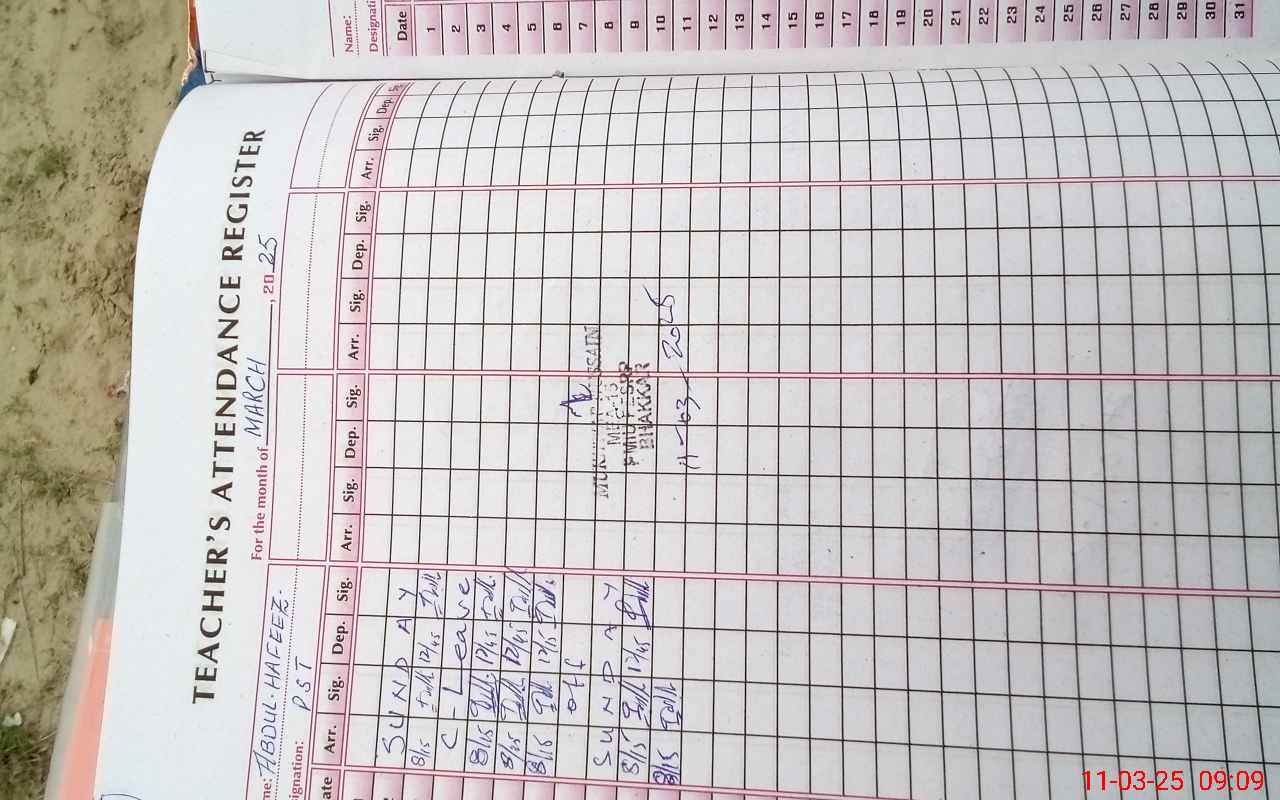 TEACHER'S ATTENDANCE REGISTER
For the month of MARCH, 20 25
me: ABDUL HAFEEZ.
signation: PST
ate Arr. Sig. Dep. Sig. Arr. Sig. Dep. Sig. Arr. Sig. Dep. Sig. Arr. Sig. Dep.
SUNDAY
8/15 12/45
C - Leave
8/15 12/45
8/15 12/45
8/15 12/15
off
SUNDAY
8/15 12/45
8/15
HUSSAIN
BHAKKAR
11-03-2025
Name:
Designati
Date
1
2
3
4
5
6
7
8
9
10
11
12
13
14
15
16
17
18
19
20
21
22
23
24
25
26
27
28
29
30
31
11-03-25 09:09